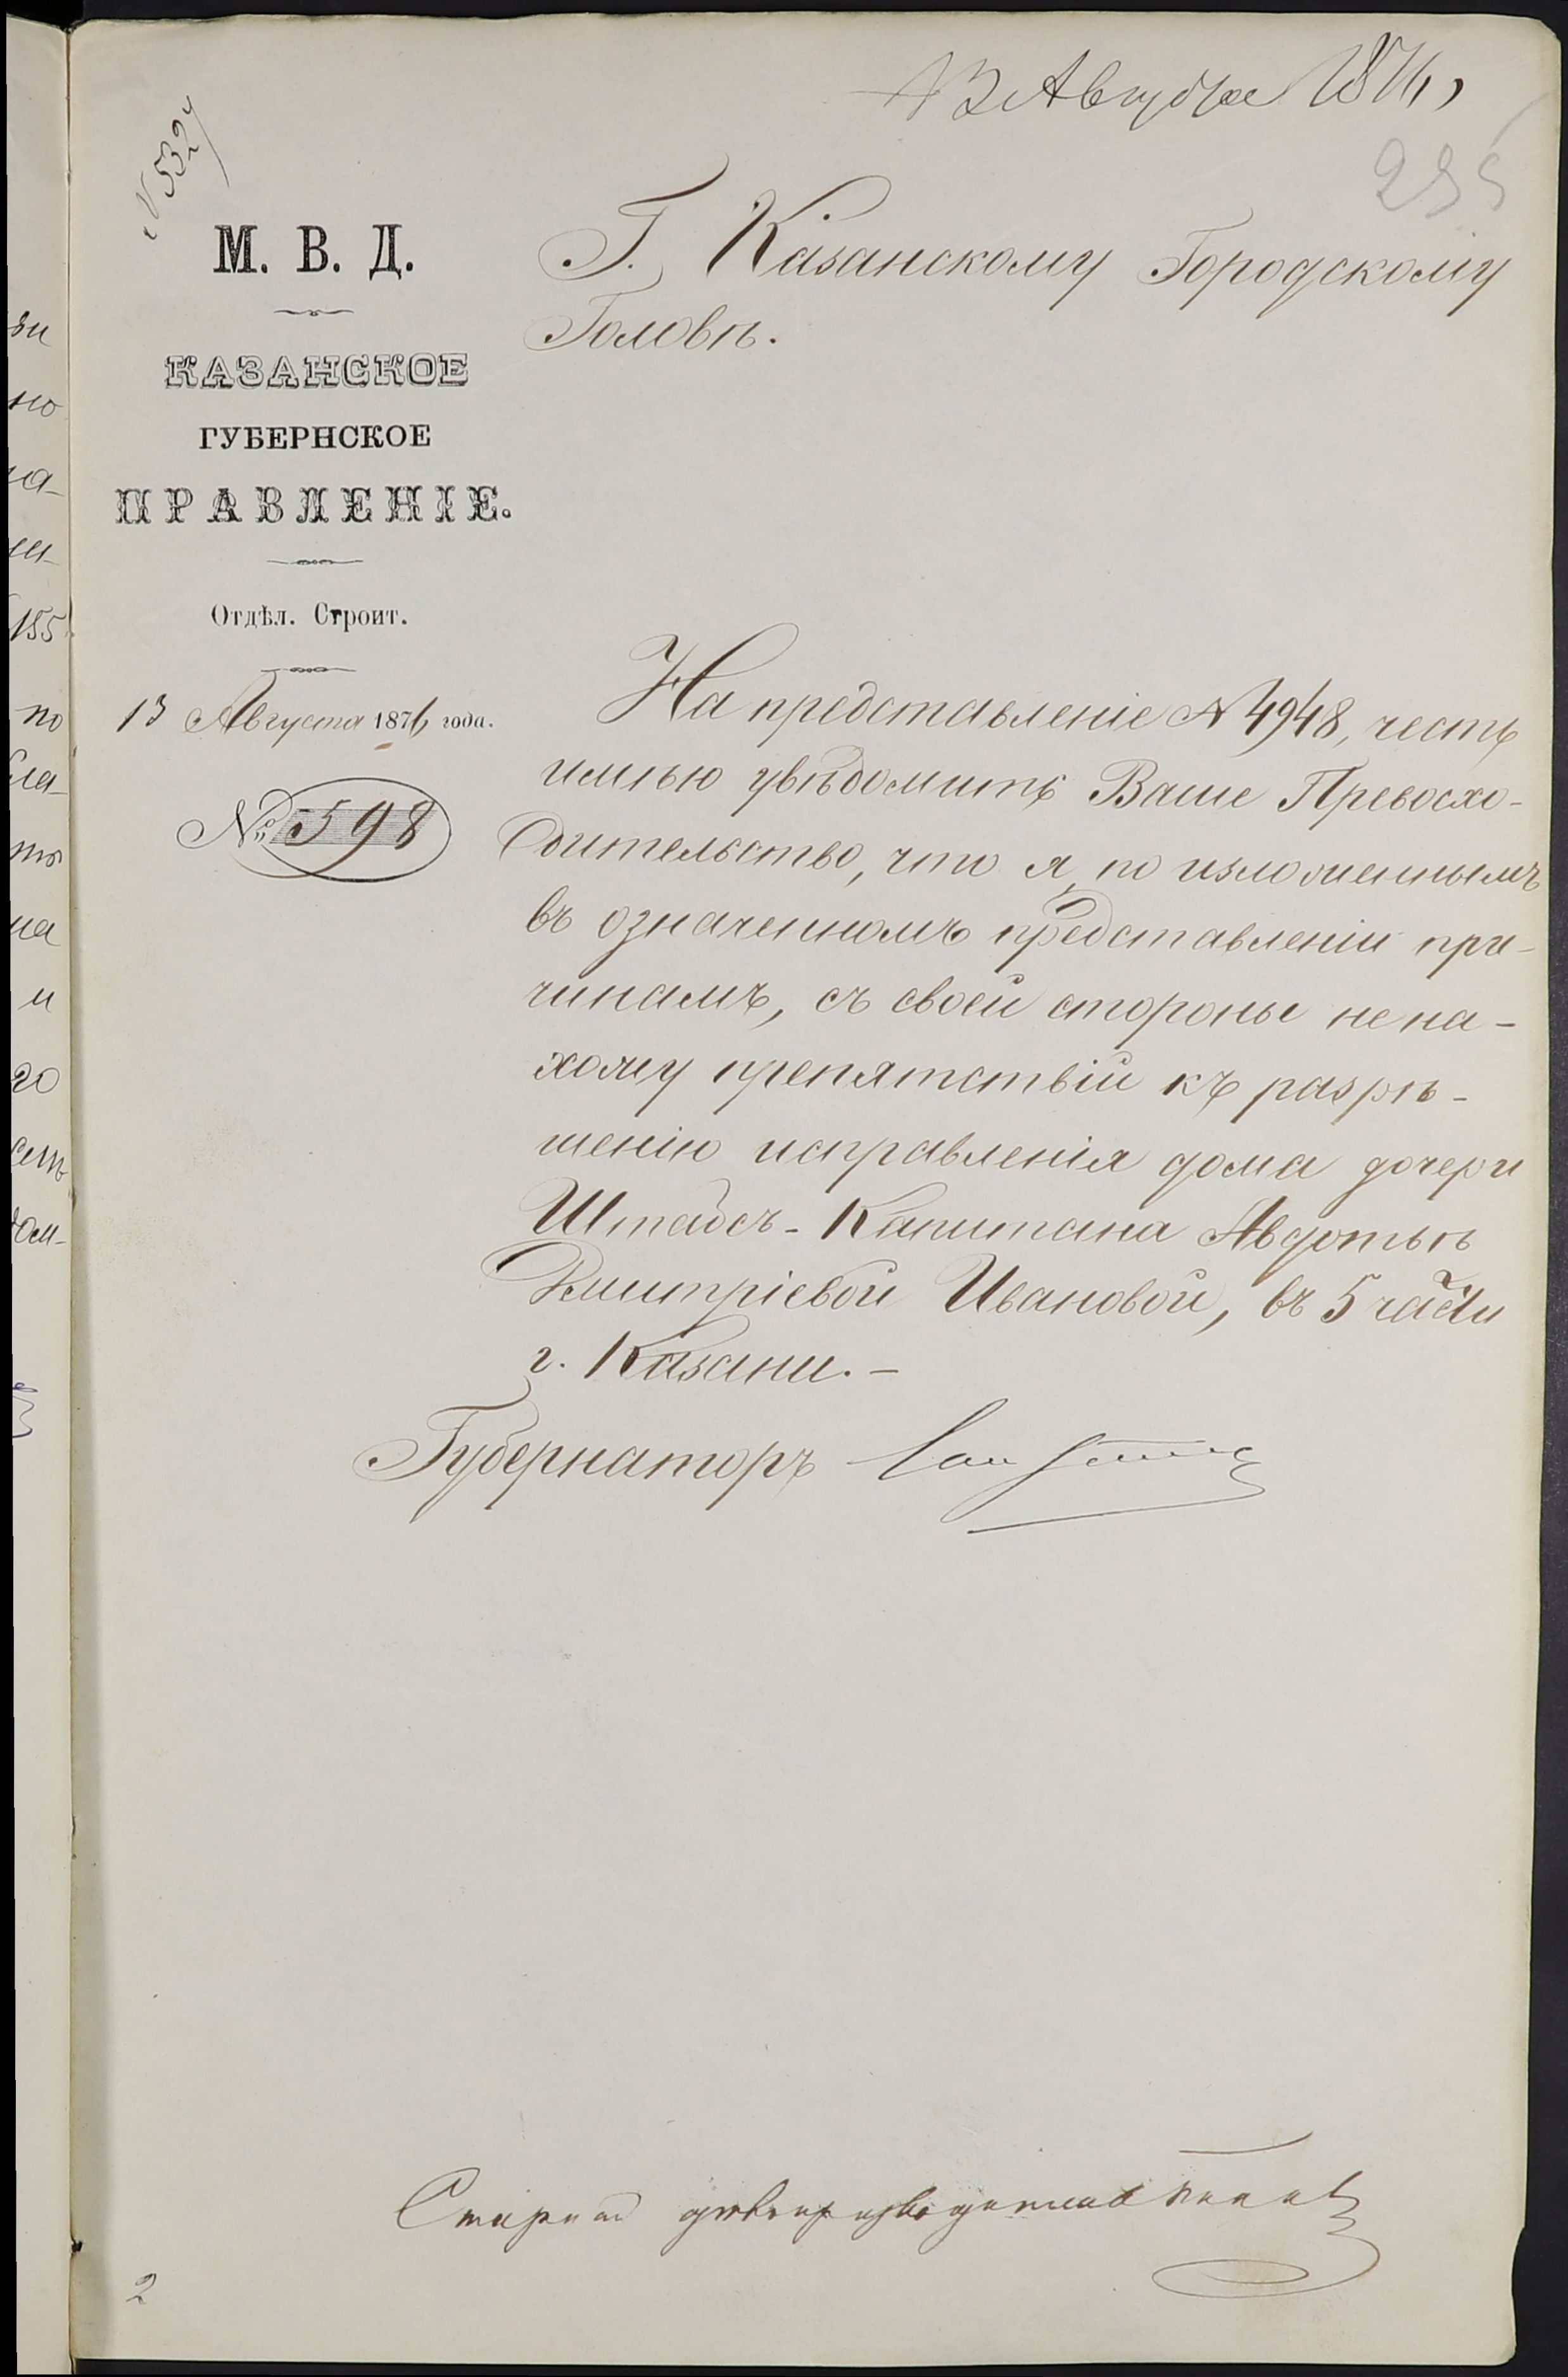 13 Августа 1876
235
N 5324
М. В. Д.
КАЗАНСКОЕ
ГУБЕРНСКОЕ
ПРАВЛЕНІЕ.
Отдѣл. Строит.
13 Августа 1876 года.
№ 598
Г. Казанскому Городскому
Головѣ.
На представленіе N 4948, честь
имѣю увѣдомить Ваше Превосхо-
дительство, что я, по изложеннымъ
въ означенномъ представленіи при-
чинамъ, съ своей стороны не на-
хожу препятствій къ разрѣ-
шенію исправленія дома дочери
Штабсъ-Капитана Авдотьѣ
Дмитріевой Ивановой, въ 5 части
г. Казани.-
Губернаторъ
Старшій дѣлопроизводитель
2
зи
но
на-
ни-
155
по
ла-
на
и
го
сть